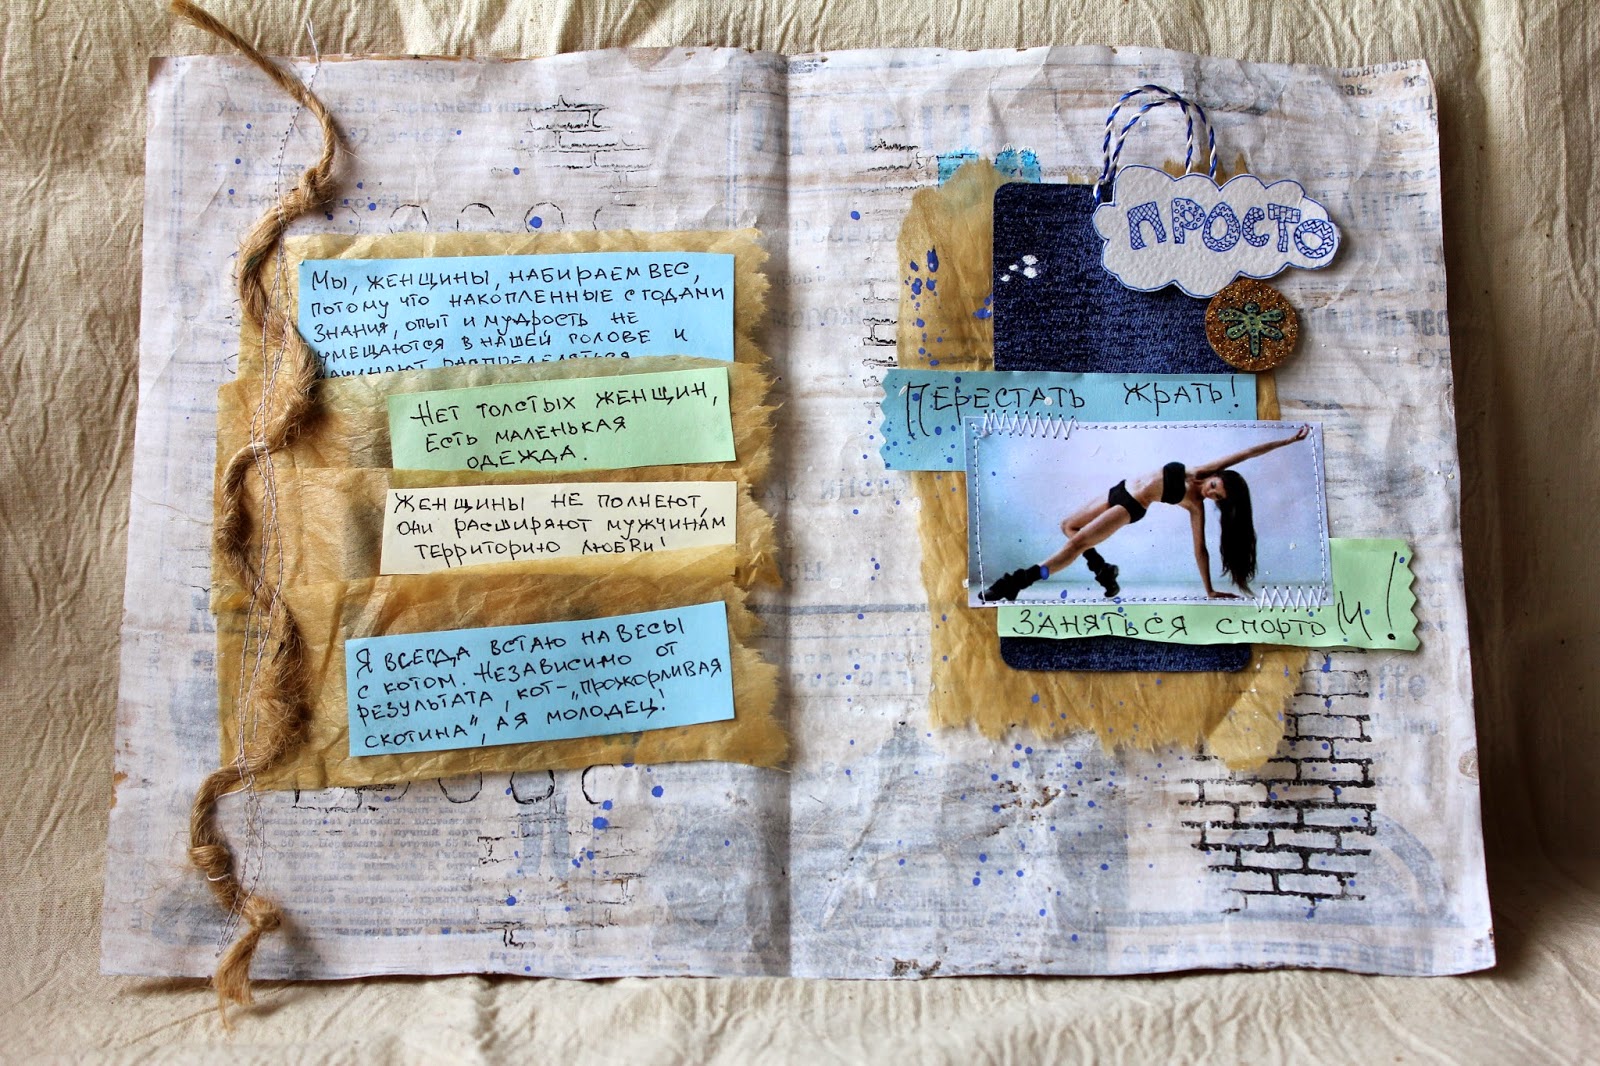 Мы, женщины, набираем вес,
потому что накопленные с годами
знания, опыт и мудрость не
умещаются в нашей голове и
начинают распределяться
Нет толстых женщин,
есть маленькая
одежда.
Женщины не полнеют,
они расширяют мужчинам
территорию любви!
Я всегда встаю на весы
с котом. Независимо от
результата, кот - „прожорливая
скотина“, а я молодец!
ПРОСТО
Перестать жрать!
Заняться спортом!